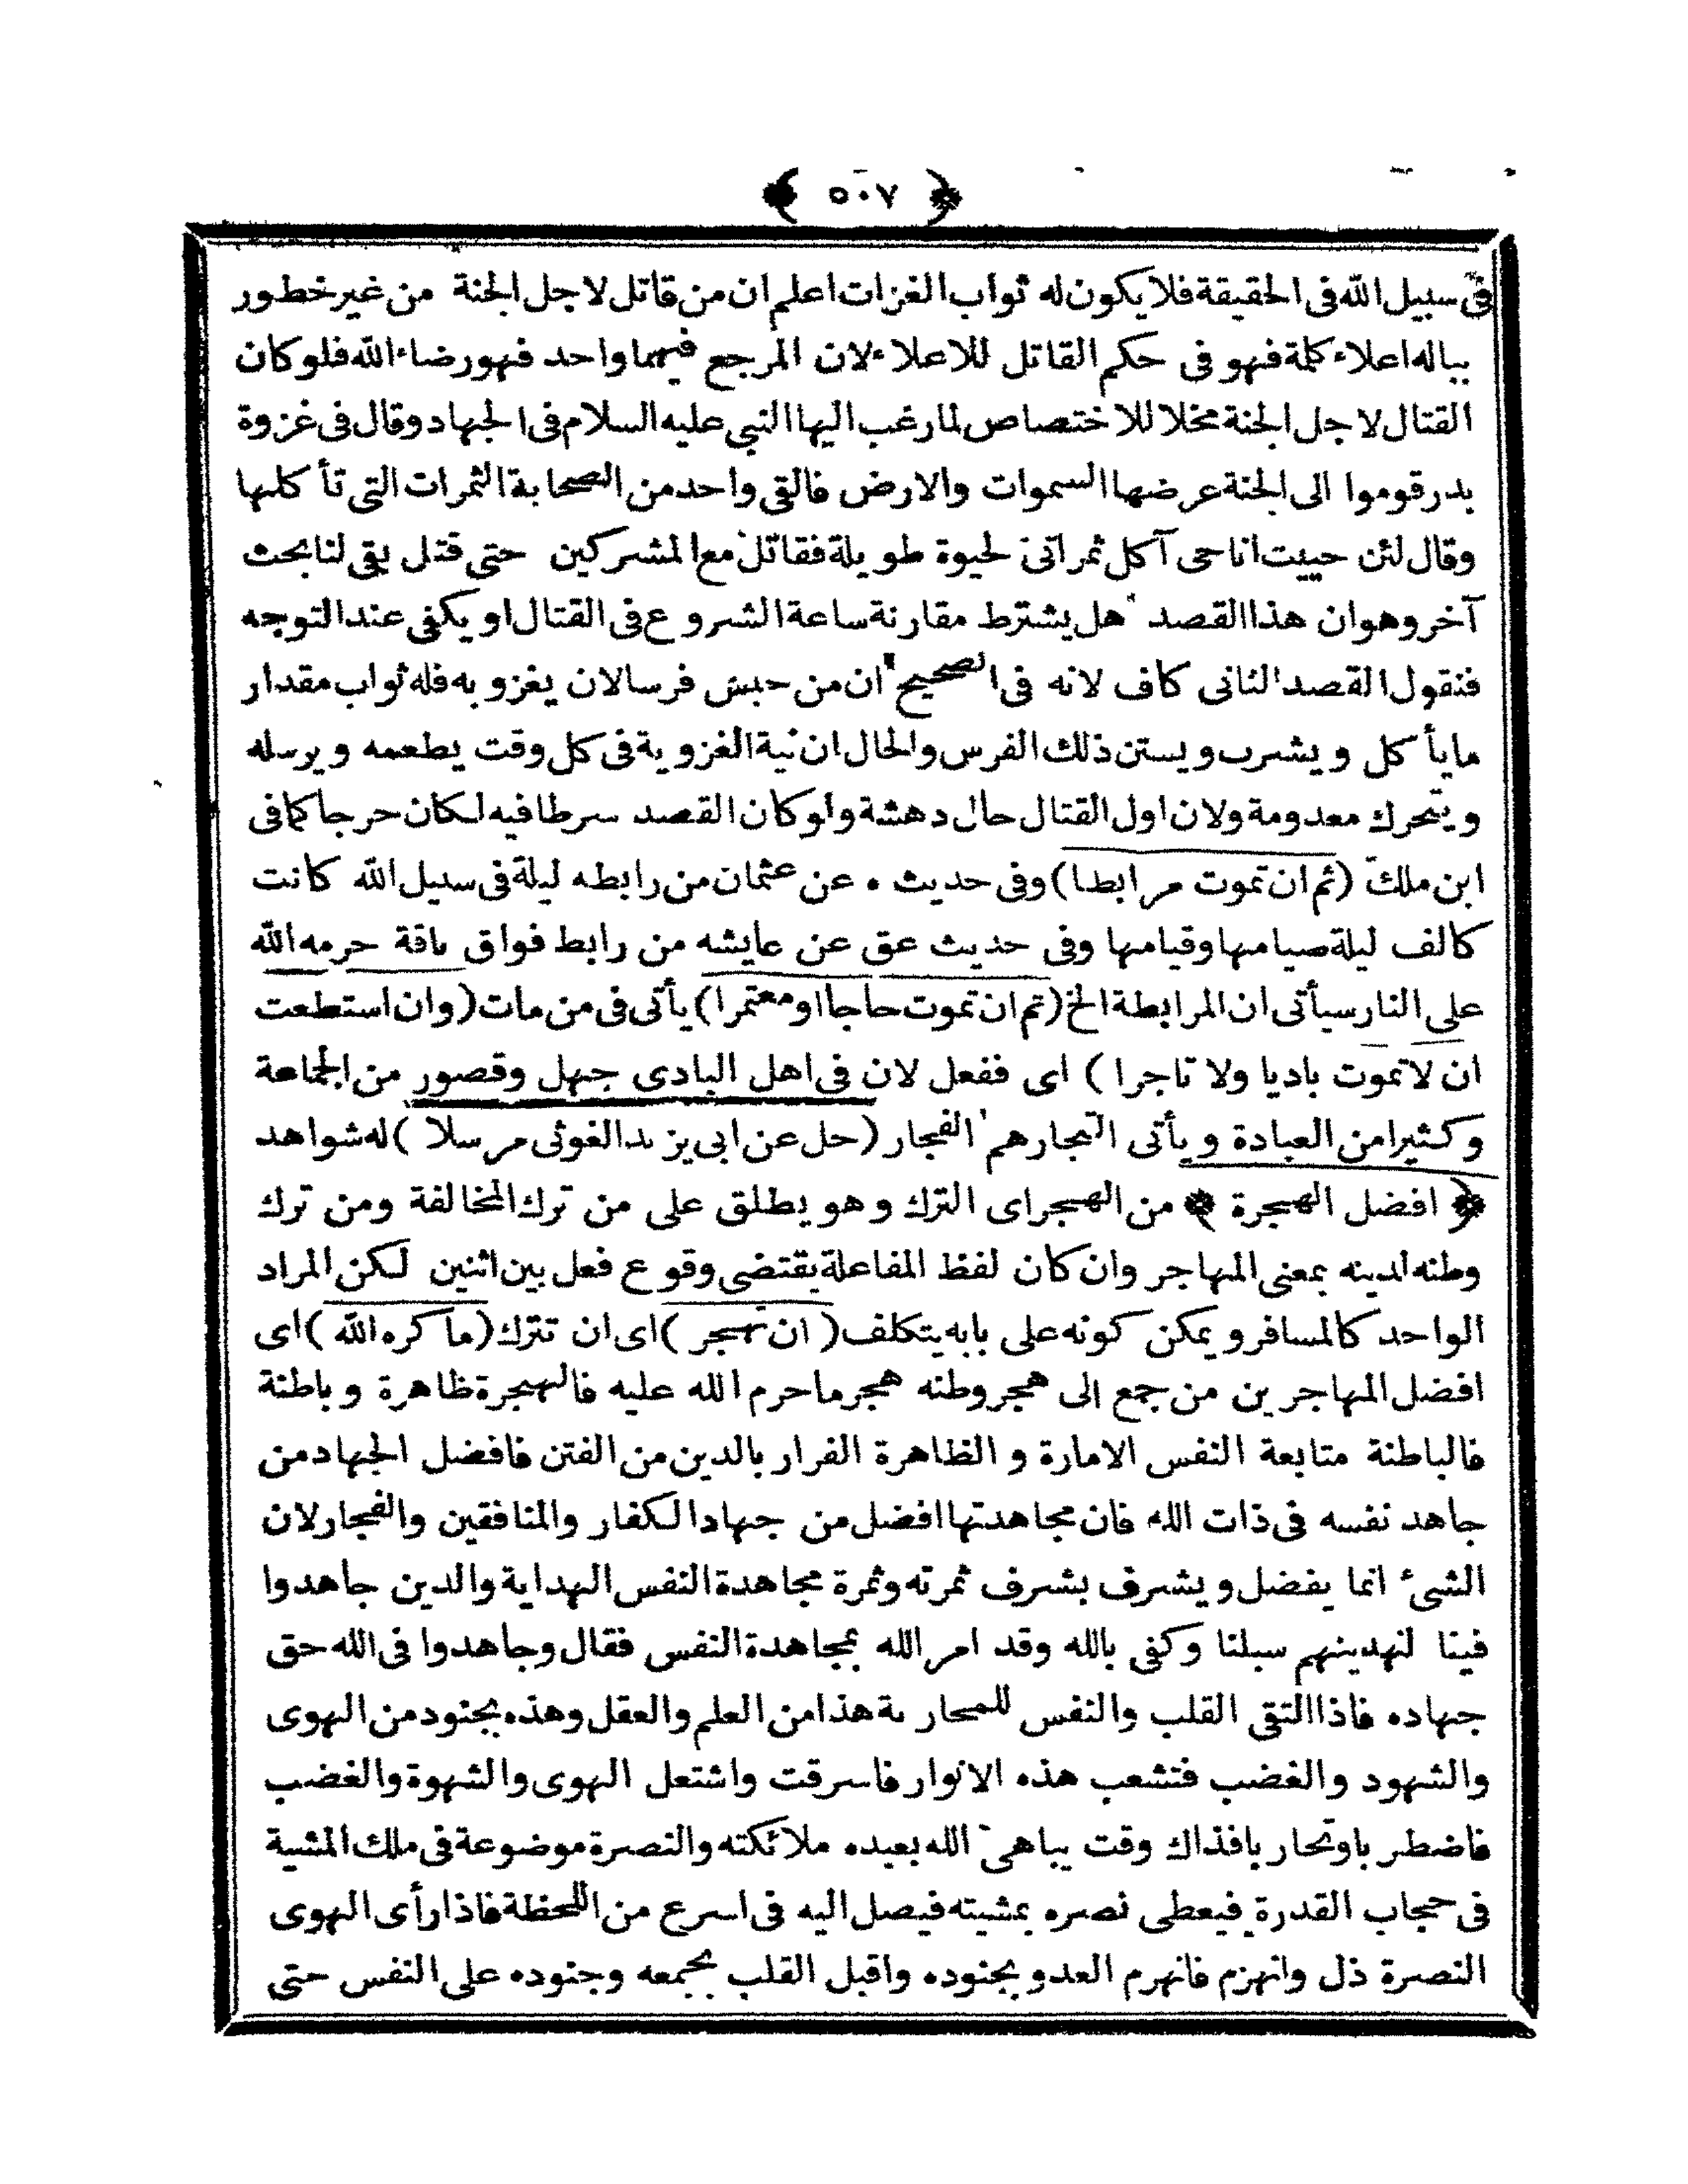 ﴿ ٥٠٧ ﴾
فى سبيل الله فى الحقيقة فلا يكون له ثواب الغزات اعلم ان من قاتل لاجل الجنة من غير خطور
بباله اعلاء كلمة فهو فى حكم القاتل للاعلاء لان المرجع فيهما واحد فهو رضاء الله فلو كان
القتال لاجل الجنة مخلا للاختصاص لما رغب اليها النبي عليه السلام فى الجهاد وقال فى غزوة
بدر قوموا الى الجنة عرضها السموات والارض فالقى واحد من الصحابة الثمرات التى تأكلها
وقال لئن حييت انا حى آكل ثمراتى لحيوة طويلة فقاتل مع المشركين حتى قتل بقى لنا بحث
آخر وهو ان هذا القصد هل يشترط مقارنة ساعة الشروع فى القتال او يكفى عند التوجه
فنقول القصد الثانى كاف لانه فى الصحيح ان من حبس فرسا لان يغزو به فله ثواب مقدار
ما يأكل ويشرب ويستن ذلك الفرس والحال ان نية الغزوية فى كل وقت يطعمه ويرسله
ويتحرك معدومة ولان اول القتال حال دهشة ولو كان القصد سرطا فيه لكان حرجا كما فى
ابن ملك (ثم ان تموت مرابطا) وفى حديث ٠ عن عثمان من رابطه ليلة فى سبيل الله كانت
كالف ليلة صيامها وقيامها وفى حديث عق عن عايشه من رابط فواق ناقة حرمه الله
على النار سيأتى ان المرابطة الخ (ثم ان تموت حاجا او معتمرا) يأتى فى من مات (وان استطعت
ان لا تموت باديا ولا تاجرا) اى ففعل لان فى اهل البادى جهل وقصور من الجماعة
وكثيرا من العبادة ويأتى التجار هم الفجار (حل عن ابى يزيد الغوئى مرسلا) له شواهد
﴿ افضل الهجرة ﴾ من الهجر اى الترك وهو يطلق على من ترك المخالفة ومن ترك
وطنه لدينه بمعنى المهاجر وان كان لفظ المفاعلة يقتضى وقوع فعل بين اثنين لكن المراد
الواحد كالمسافر ويمكن كونه على بابه يتكلف (ان تهجر) اى ان تترك (ما كره الله) اى
افضل المهاجرين من جمع الى هجر وطنه هجر ما حرم الله عليه فالهجرة ظاهرة وباطنة
فالباطنة متابعة النفس الامارة و الظاهرة الفرار بالدين من الفتن فافضل الجهاد من
جاهد نفسه فى ذات الله فان مجاهدتها افضل من جهاد الكفار والمنافقين والفجار لان
الشىء انما يفضل ويشرف بشرف ثمرته وثمرة مجاهدة النفس الهداية والدين جاهدوا
فينا لنهدينهم سبلنا وكفى بالله وقد امر الله بمجاهدة النفس فقال وجاهدوا فى الله حق
جهاده فاذا التقى القلب والنفس للمحاربة هذا من العلم والعقل وهذه بجنود من الهوى
والشهود والغضب فتشعب هذه الانوار فاسرقت واشتعل الهوى والشهوة والغضب
فاضطربا وتحاربا فذاك وقت يباهى الله بعبده ملائكته والنصرة موضوعة فى ملك المشية
فى حجاب القدرة فيعطى نصره بمشيته فيصل اليه فى اسرع من اللحظة فاذا رأى الهوى
النصرة ذل وانهزم فانهرم العدو بجنوده واقبل القلب بجمعه وجنوده على النفس حتى